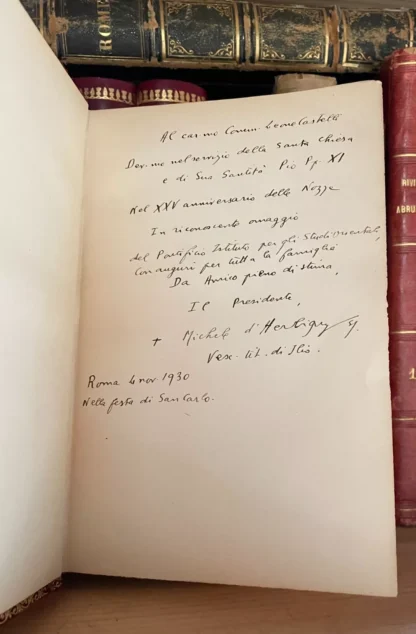 ROME
Al car.mo Comm. Leone Castelli
Dev.mo nel servizio della Santa Chiesa
e di Sua Santità Pio Pp. XI
Nel XXV anniversario delle Nozze
In riconoscente omaggio
del Pontificio Istituto per gli Studi Orientali,
con auguri per tutta la famiglia
Da Amico pieno di stima,
Il Presidente,
+ Michele d'Herbigny S.J.
Vesc. tit. di Ilio.
Roma 4 nov. 1930
Nella festa di San Carlo.
RIVI
ABRU
1